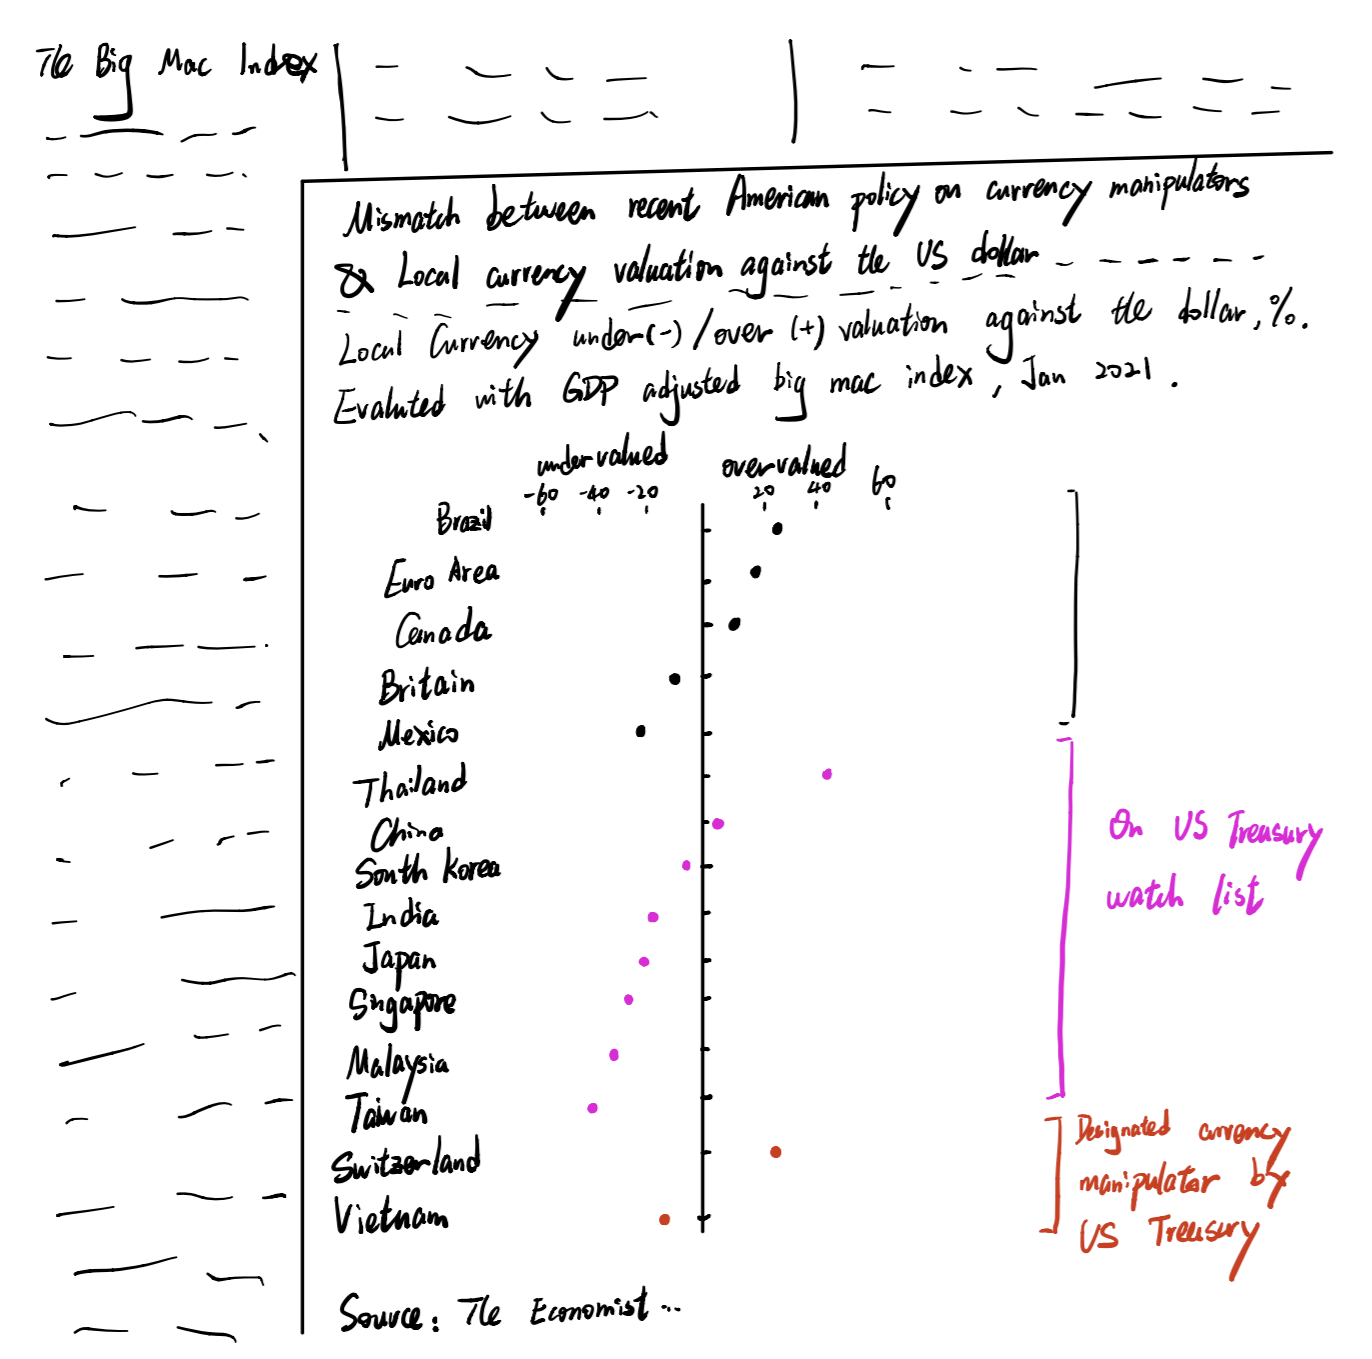 The Big Mac Index
Mismatch between recent American policy on currency manipulators
& Local currency valuation against the US dollar
Local Currency under(-)/over (+) valuation against the dollar, %.
Evaluted with GDP adjusted big mac index, Jan 2021.
undervalued overvalued
-60 -40 -20 20 40 60
Brazil
Euro Area
Canada
Britain
Mexico
Thailand
China
South Korea
India
Japan
Singapore
Malaysia
Taiwan
Switzerland
Vietnam
On US Treasury
watch list
Designated currency
manipulator by
US Treasury
Source: The Economist...